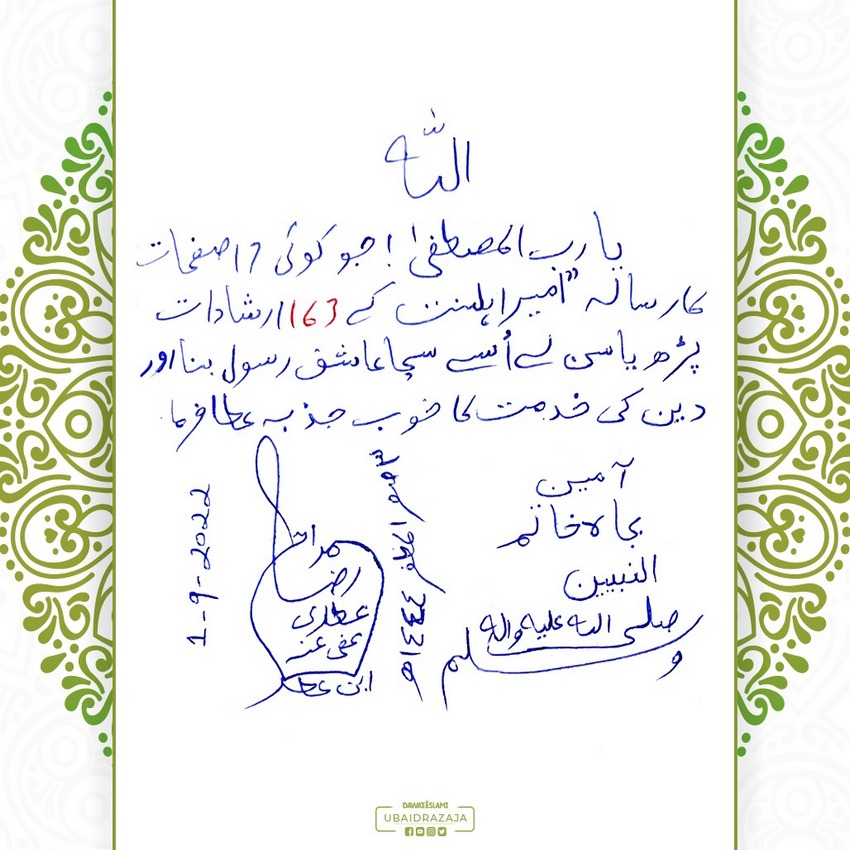 اللّٰہ
یا رب المصطفیٰ! جو کوئی 17 صفحات
کا رسالہ "امیر اہلسنت کے 163 ارشادات
پڑھ یا سن لے اُسے سچا عاشق رسول بنا اور
دین کی خدمت کا خوب جذبہ عطا فرما
آمین
بجاہ خاتم
النبیین
صلی اللہ علیہ واٰلہ
وسلم
رضا
عطاری
عفی عنہ
ابن عطار
1-9-2022
DAWATEISLAMI
UBAIDRAZAJA